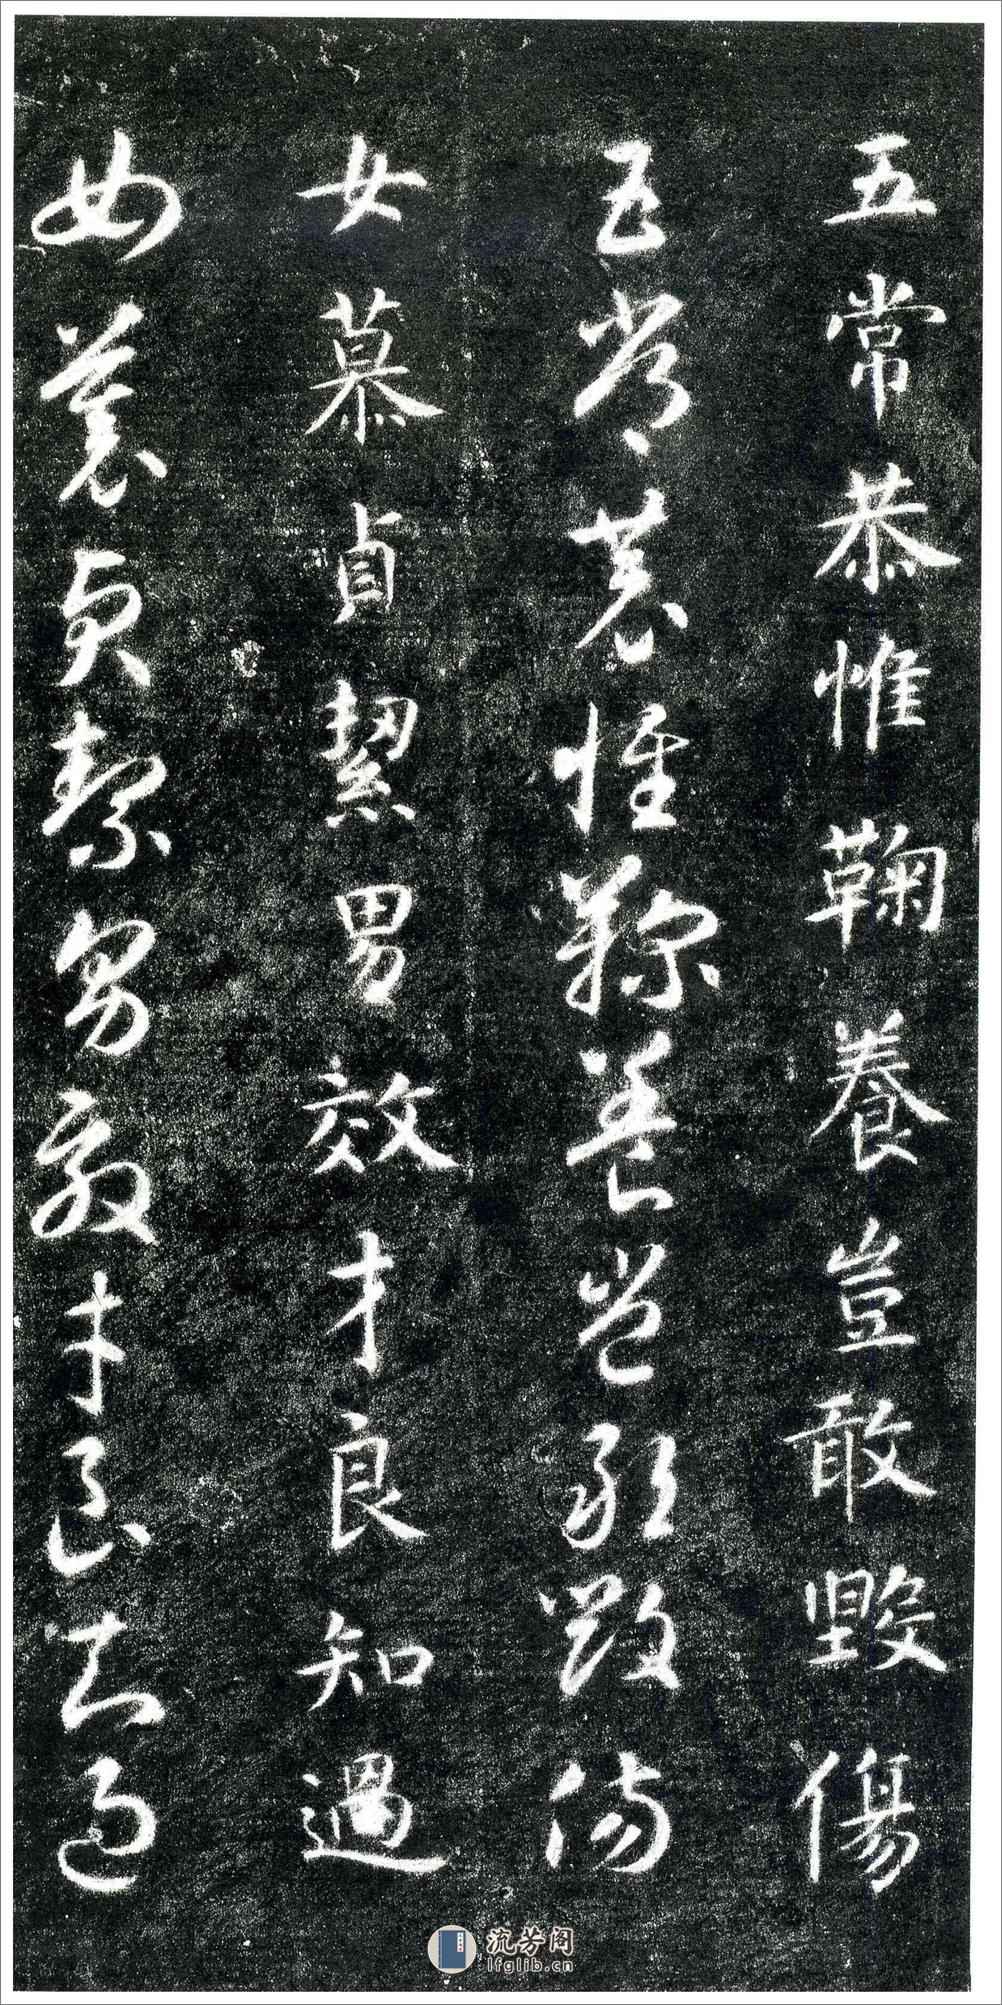 五常恭惟鞠養豈敢毀傷
五常恭惟鞠養豈敢毀傷
女慕貞絜男效才良知過
女慕貞絜男效才良知過
流芳阁
lfglib.cn